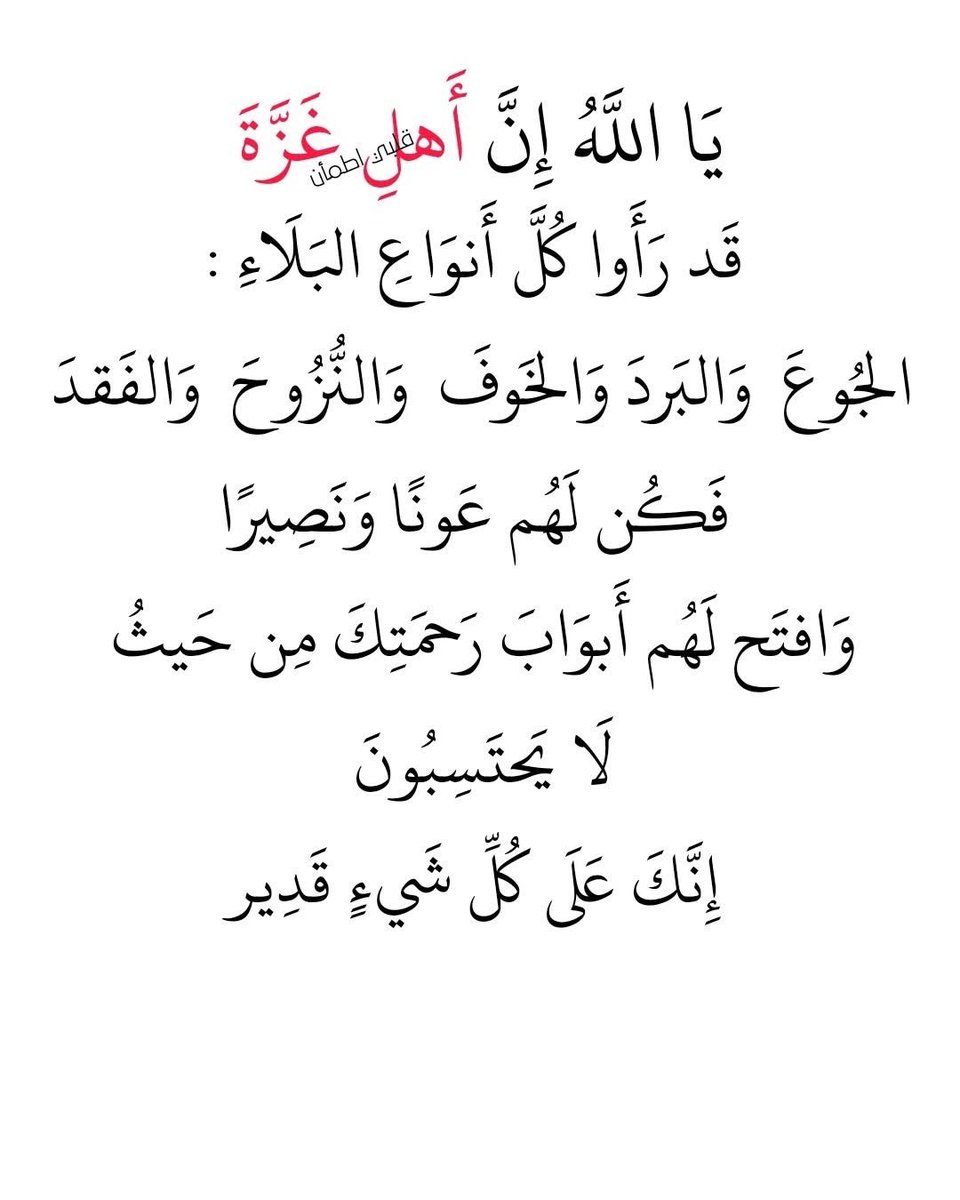 يَا اللَّهُ إِنَّ أَهلِ غَزَّةَ
قلبي اطمأن
قَد رَأَوا كُلَّ أَنوَاعِ البَلَاءِ :
الجُوعَ وَالبَردَ وَالخَوفَ وَالنُّزُوحَ وَالفَقدَ
فَكُن لَهُم عَونًا وَنَصِيرًا
وَافتَح لَهُم أَبوَابَ رَحمَتِكَ مِن حَيثُ
لَا يَحتَسِبُونَ
إِنَّكَ عَلَى كُلِّ شَيءٍ قَدِير